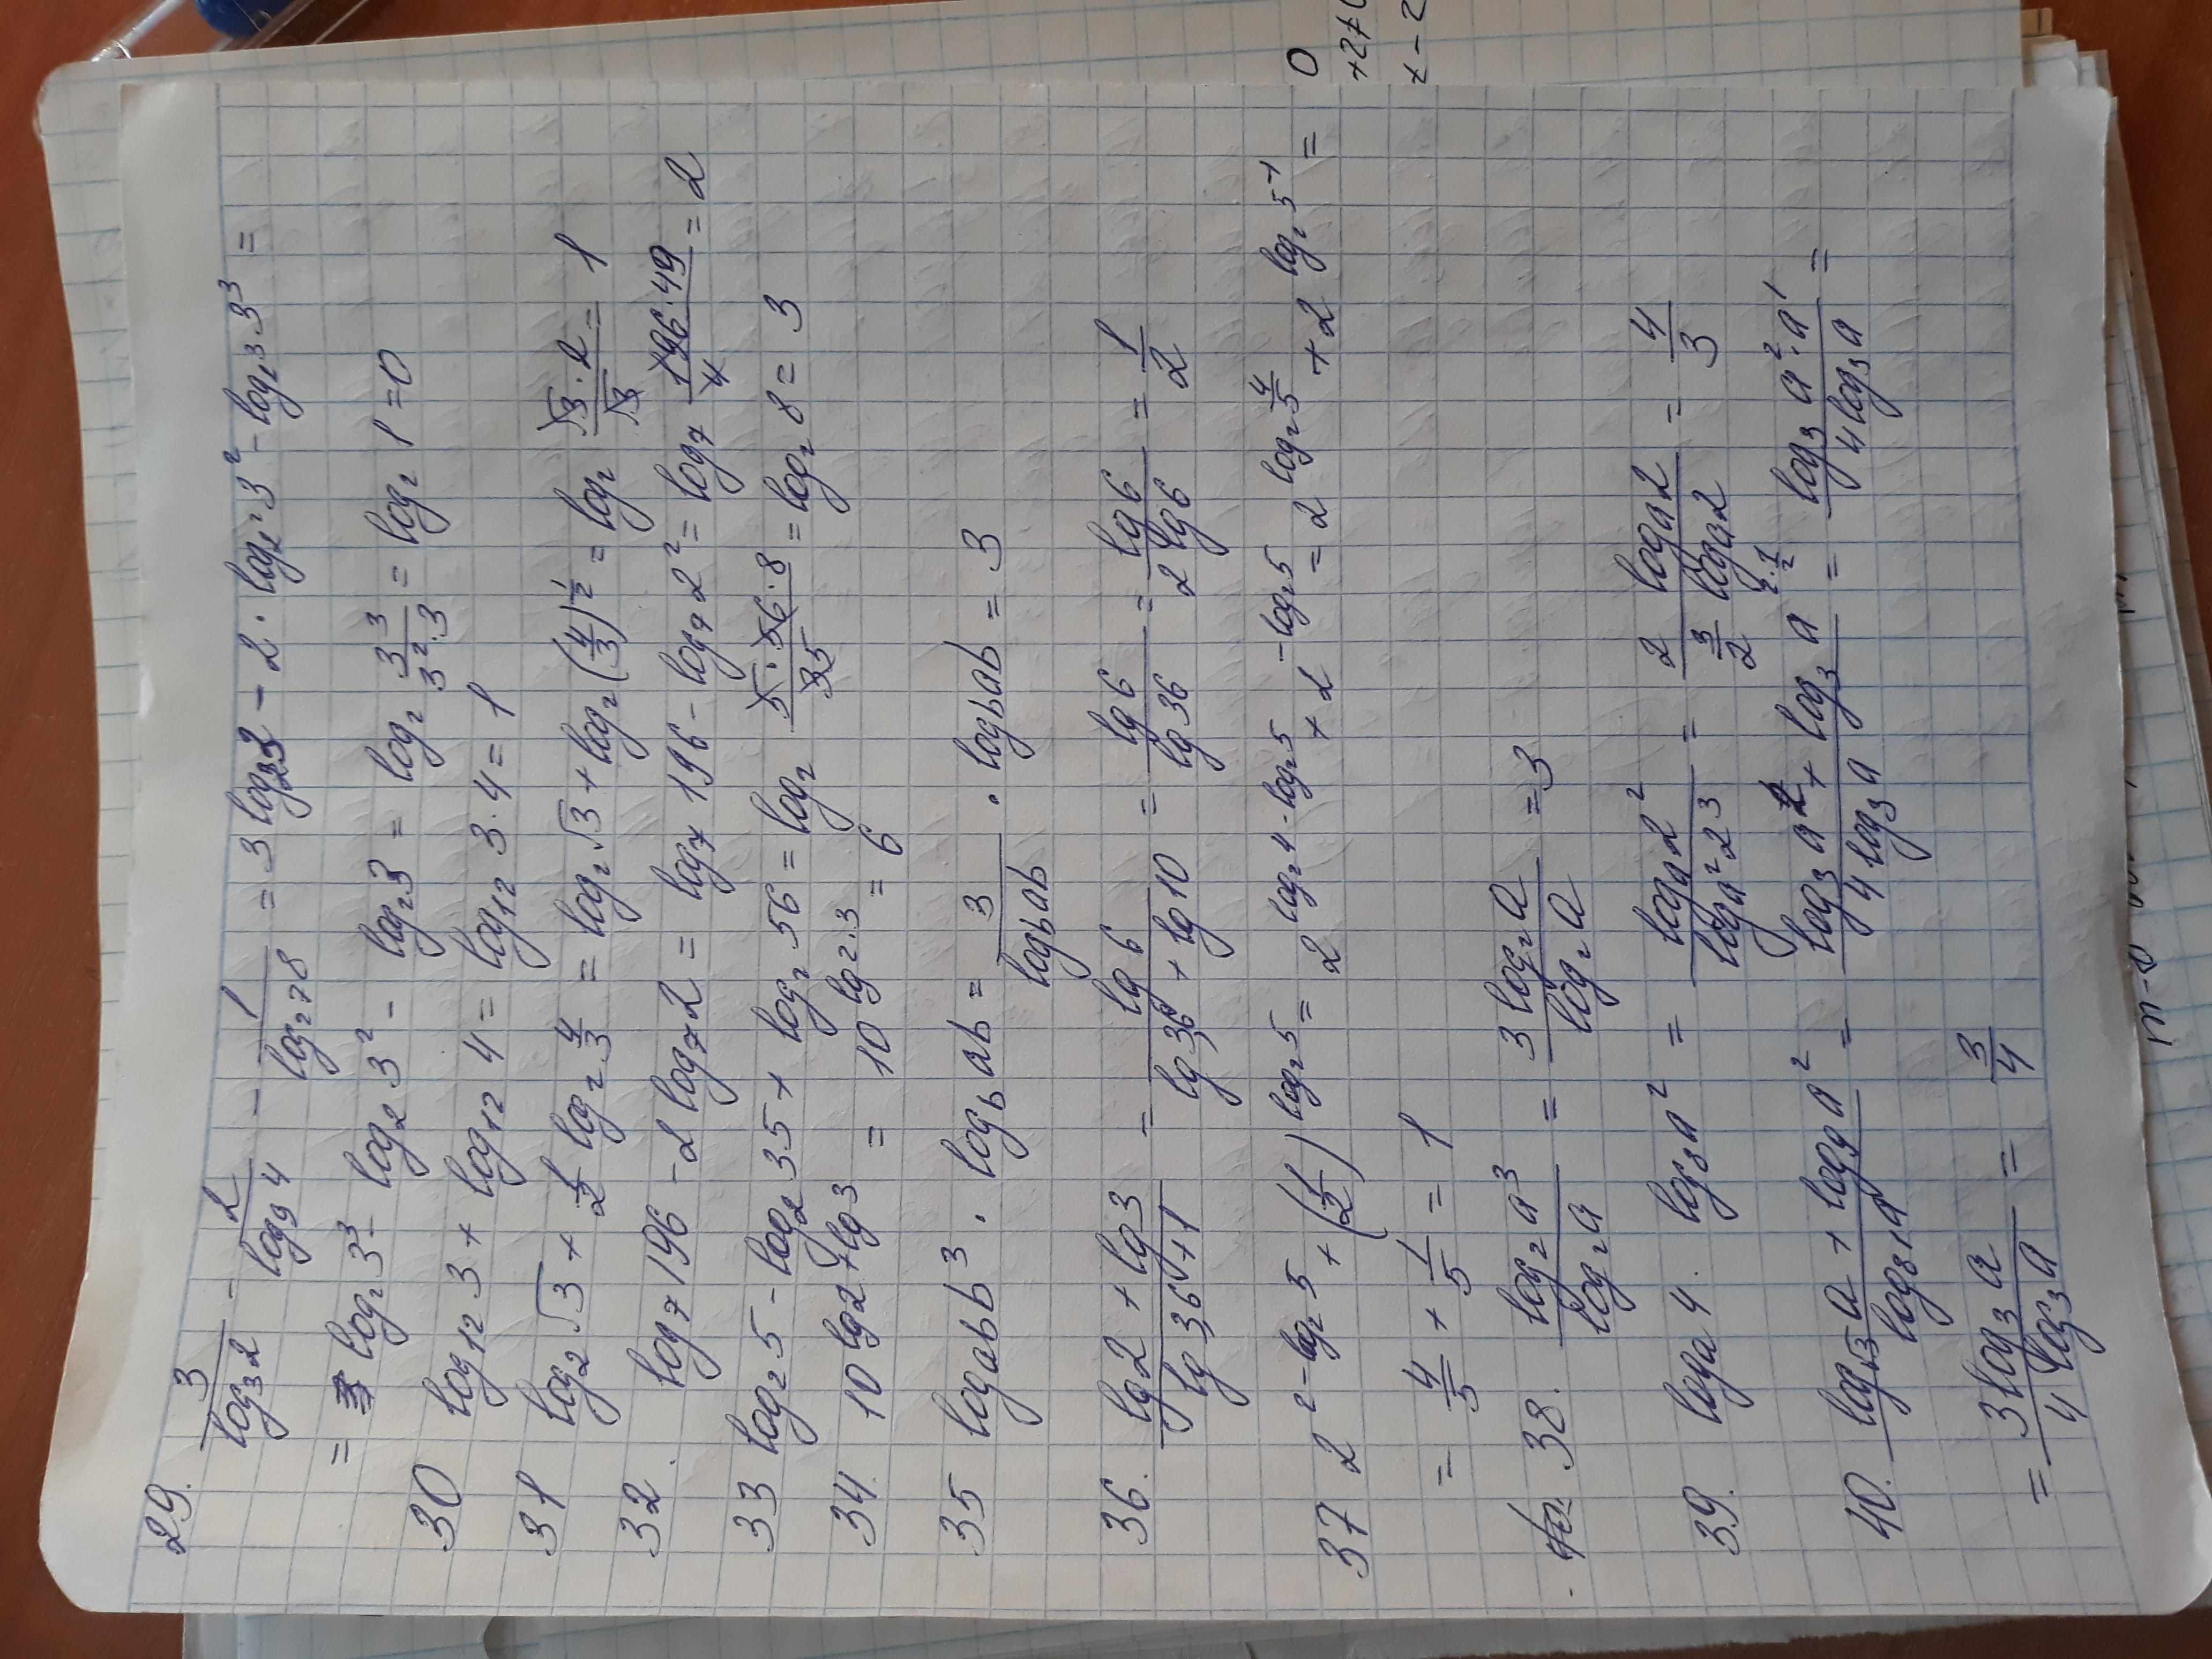 29. 3/log₃2 - 2/log₉4 - 1/log₂₇8 = 3log₂3 - 2·log₂²3² - log₂³3³ =
= log₂3³ - log₂3² - log₂3 = log₂ 3³/(3²·3) = log₂1 = 0
30 log₁₂3 + log₁₂4 = log₁₂3·4 = 1
31 log₂√3 + 1/2 log₂ 4/3 = log₂√3 + log₂(4/3)^(1/2) = log₂ (√3·2)/√3 = 1
32. log₇196 - 2log₇2 = log₇196 - log₇2² = log₇ (196·49)/4 = 2
33 log₂5 - log₂35 + log₂56 = log₂ (5·56·8)/35 = log₂8 = 3
34. 10^(lg2+lg3) = 10^(lg2·3) = 6
35 log_ab b³ · log_b ab = 3/(log_b ab) · log_b ab = 3
36. (lg2 + lg3)/(lg3,6+1) = lg6/(lg3,6+lg10) = lg6/lg36 = lg6/(2lg6) = 1/2
37 2^(2-log₂5) + (1/2)^(log₂5) = 2^(log₂4-log₂5) + 2^(-log₂5) = 2^(log₂4/5) + 2^(log₂5⁻¹) =
= 4/5 + 1/5 = 1
38. log₂a³/log₂a = 3log₂a/log₂a = 3
39. log_a4 · log₈a² = log_a2²/log_a²2³ = 2log_a2/(3/2 log_a2) = 4/3
40. (log_√3 a + log₉a²)/log₈₁a = (log₃a² + log₃a)/(4log₃a) = (log₃a²·a¹)/(4log₃a) =
= 3log₃a/(4log₃a) = 3/4
0